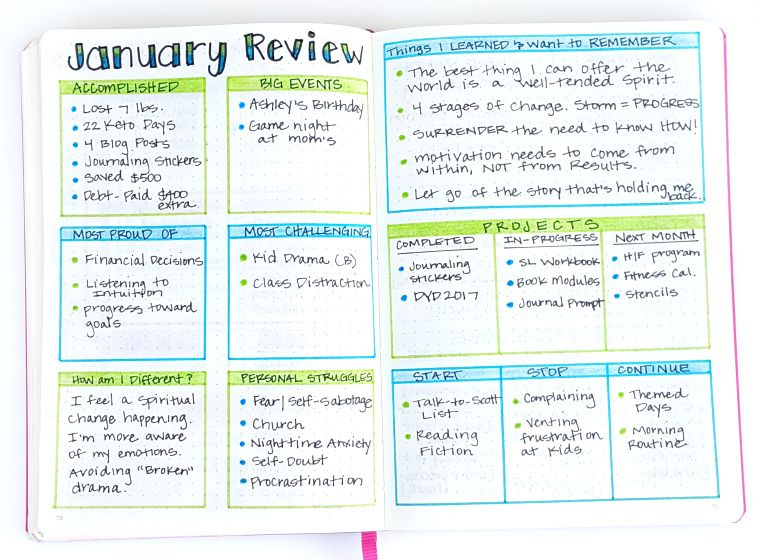 January Review
ACCOMPLISHED
Lost 7 lbs.
22 Keto Days
4 Blog Posts
Journaling Stickers
Saved $500
Debt-Paid $400
extra
BIG EVENTS
Ashley's Birthday
Game night
at mom's
MOST PROUD OF
Financial Decisions
Listening to
Intuition
progress toward
goals
MOST CHALLENGING
Kid Drama (B)
Class Distraction
How am I Different?
I feel a spiritual
change happening.
I'm more aware
of my emotions.
Avoiding "Broken"
drama.
PERSONAL STRUGGLES
Fear/Self-Sabotage
Church
Nighttime Anxiety
Self-Doubt
Procrastination
70
Things I LEARNED & Want to REMEMBER
The best thing I can offer the
world is a well-tended Spirit.
4 stages of change. Storm = PROGRESS
SURRENDER the need to know HOW!
motivation needs to come from
within, NOT from Results.
Let go of the story that's holding me
back.
PROJECTS
COMPLETED
Journaling
stickers
DYD2017
IN-PROGRESS
SL Workbook
Book Modules
Journal Prompt
NEXT MONTH
HIF program
Fitness Cal.
Stencils
START
Talk-to-Scott
List
Reading
Fiction
STOP
Complaining
Venting
frustration
at kids
CONTINUE
Themed
Days
Morning
Routine
71